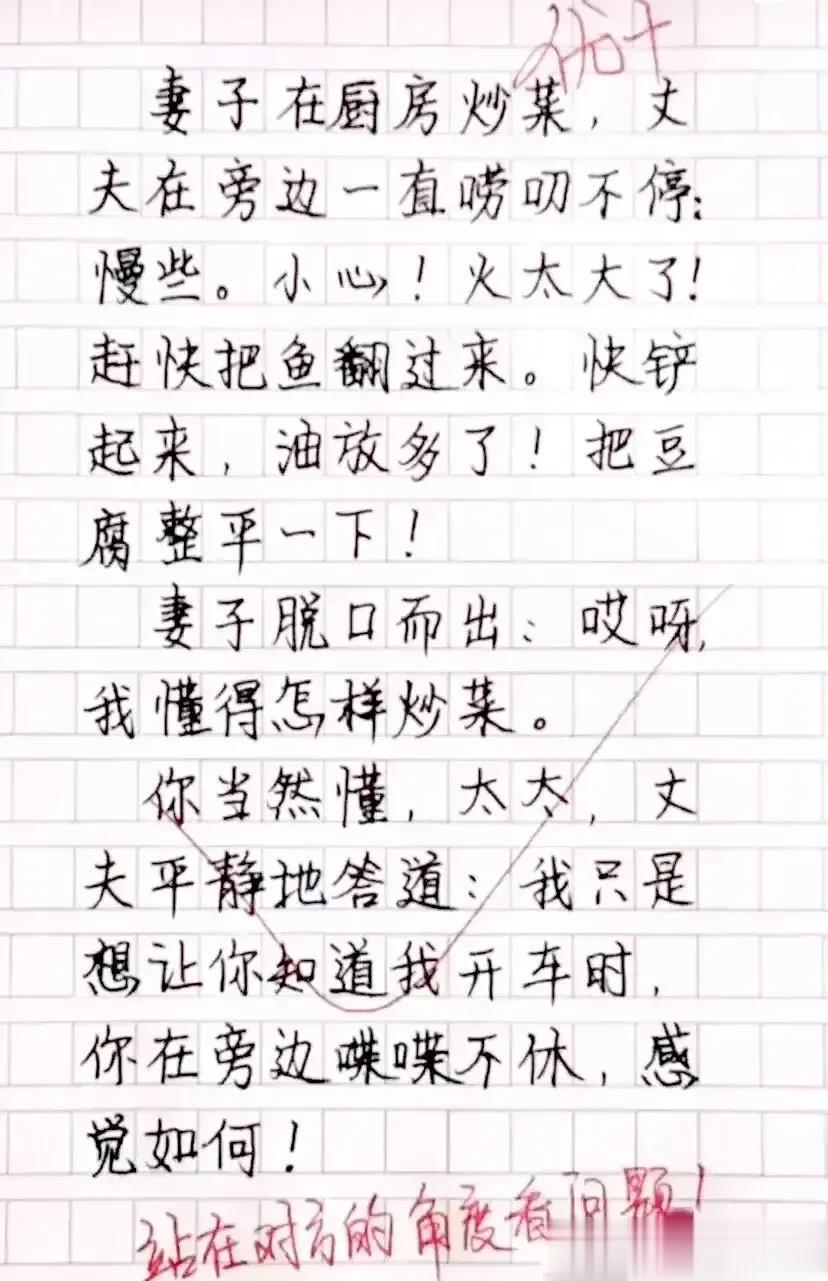 优+
妻子在厨房炒菜，丈
夫在旁边一直唠叨不停：
慢些。小心！火太大了！
赶快把鱼翻过来。快铲
起来，油放多了！把豆
腐整平一下！
妻子脱口而出：哎呀，
我懂得怎样炒菜。
你当然懂，太太，丈
夫平静地答道：我只是
想让你知道我开车时，
你在旁边喋喋不休，感
觉如何！
站在对方的角度看问题！